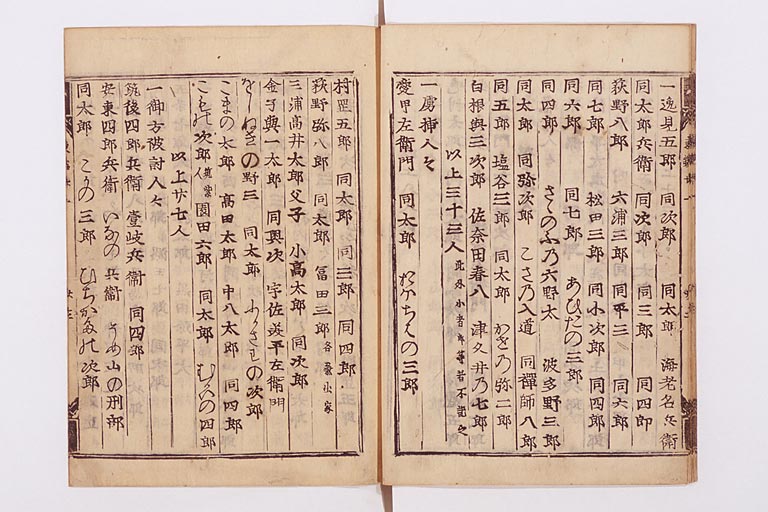 一逸見五郎 同次郎 同太郎 海老名兵衛
同太郎兵衛 同次郎 同三郎 同四郎
荻野八郎 六浦三郎 同平三 同六郎
同七郎 松田三郎 同小次郎 同四郎
同六郎 同七郎 あひたの三郎
同四郎 さゝのふ乃六野太 波多野三郎
同太郎 同弥次郎 こさ乃入道 同禅師八郎
同五郎 塩谷三郎 同太郎 かき乃弥二郎
白根與三次郎 佐奈田春八 津久井乃七郎
以上三十三人 此外小者郎等者不記之
一虜掃人々
愛甲左衛門 同太郎 三郎
村罡五郎 同太郎 同三郎 同四郎
荻野弥八郎 同太郎 冨田三郎
三浦高井太郎父子 小高太郎 同次郎
金子與一太郎 同與次 宇佐美平左衛門
野三 同太郎 次郎
こまの太郎 高田太郎 中八太郎 同四郎
次郎 園田六郎 同太郎 四郎
以上廿七人
一御方被討人々
筑後四郎兵衛 壹岐兵衛 同四郎
安東四郎兵衛 いなの兵衛 うめ山の刑部
同太郎 三郎 ひちかたの次郎